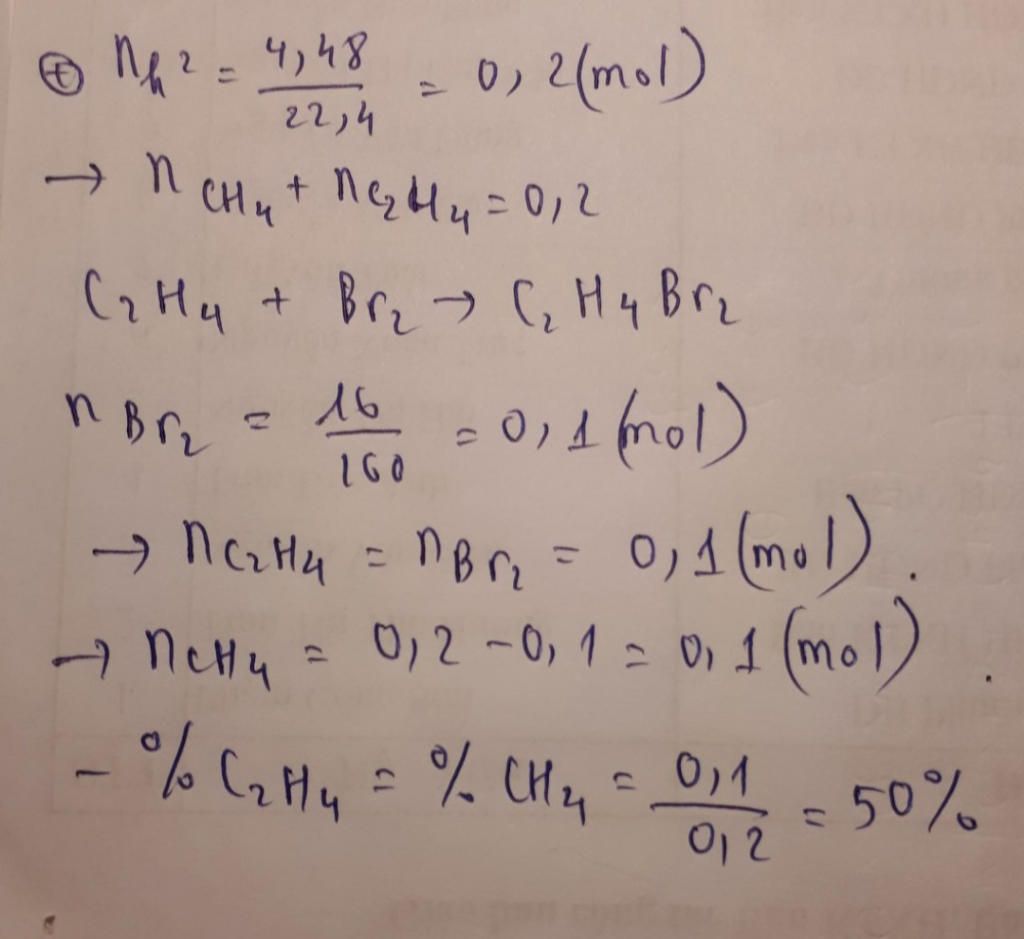 ⊕ nh2 = 4,48/22,4 = 0,2(mol)
→ nCH4 + nC2H4 = 0,2
C2H4 + Br2 → C2H4Br2
nBr2 = 16/160 = 0,1(mol)
→ nC2H4 = nBr2 = 0,1(mol).
→ nCH4 = 0,2 - 0,1 = 0,1(mol).
- % C2H4 = % CH4 = 0,1/0,2 = 50%